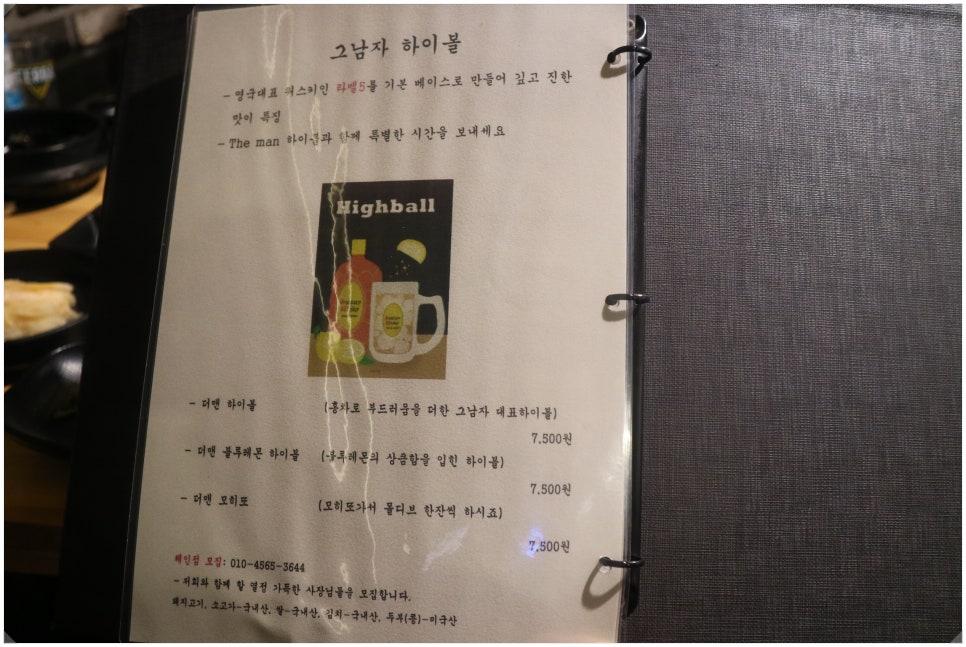 그남자 하이볼
- 영국대표 위스키인 라벨5를 기본 베이스로 만들어 깊고 진한
맛이 특징
- The man 하이볼과 함께 특별한 시간을 보내세요
Highball
- 더맨 하이볼 (홍차로 부드러움을 더한 그남자 대표하이볼)
7,500원
- 더맨 블루레몬 하이볼 (블루레몬의 상큼함을 입힌 하이볼)
7,500원
- 더맨 모히또 (모히또가서 몰디브 한잔씩 하시죠)
7,500원
체인점 모집: 010-4565-3644
- 저희와 함께 할 열정 가득한 사장님들을 모집합니다.
돼지고기, 소고기-국내산, 쌀-국내산, 김치-국내산, 두부(콩)-미국산